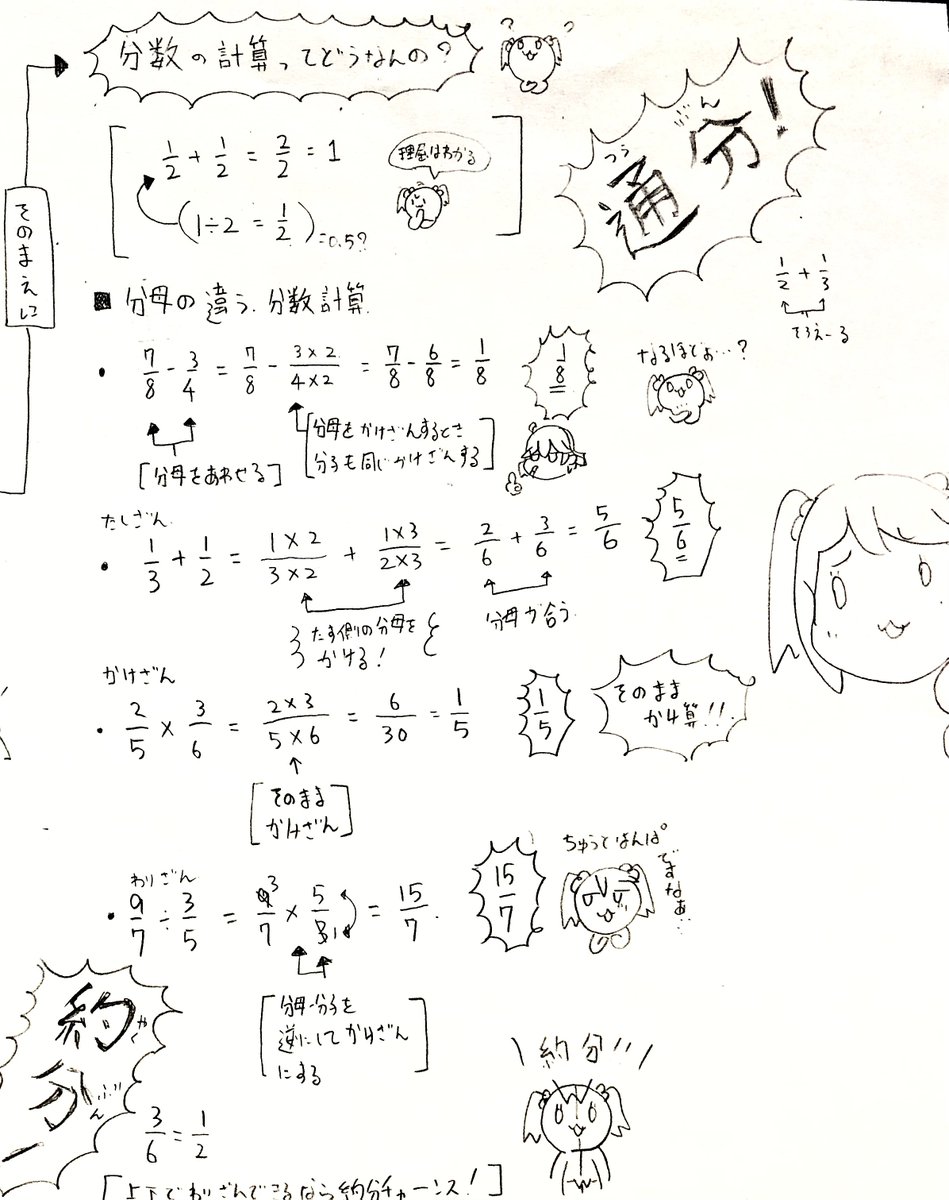 分数の計算ってどうなんの?
? ?
そのまえに
1/2 + 1/2 = 2/2 = 1
理屈はわかる
(1÷2 = 1/2) =0.5?
つう ぶん
通分!
1/2 + 1/3
そろえーる
■ 分母の違う分数計算
・ 7/8 - 3/4 = 7/8 - 3×2/4×2 = 7/8 - 6/8 = 1/8
1/8
なるほどぉ…?
[分母をあわせる]
[分母をかけざんするとき
分子も同じかけざんする]
たしざん
・ 1/3 + 1/2 = 1×2/3×2 + 1×3/2×3 = 2/6 + 3/6 = 5/6
5/6
たす側の分母を
かける!
分母が合う
かけざん
・ 2/5 × 3/6 = 2×3/5×6 = 6/30 = 1/5
1/5
そのまま
かけ算!!
[そのまま
かけざん]
わりざん
・ 9/7 ÷ 3/5 = 9 3/7 × 5/3 1 = 15/7
15/7
ちゅうとはんぱ
ですなぁ…
[分母・分子を
逆にしてかけざん
にする]
約分
やくぶん
\約分!!/
3/6 = 1/2
[上下でわりざんできるなら約分チャーンス!]